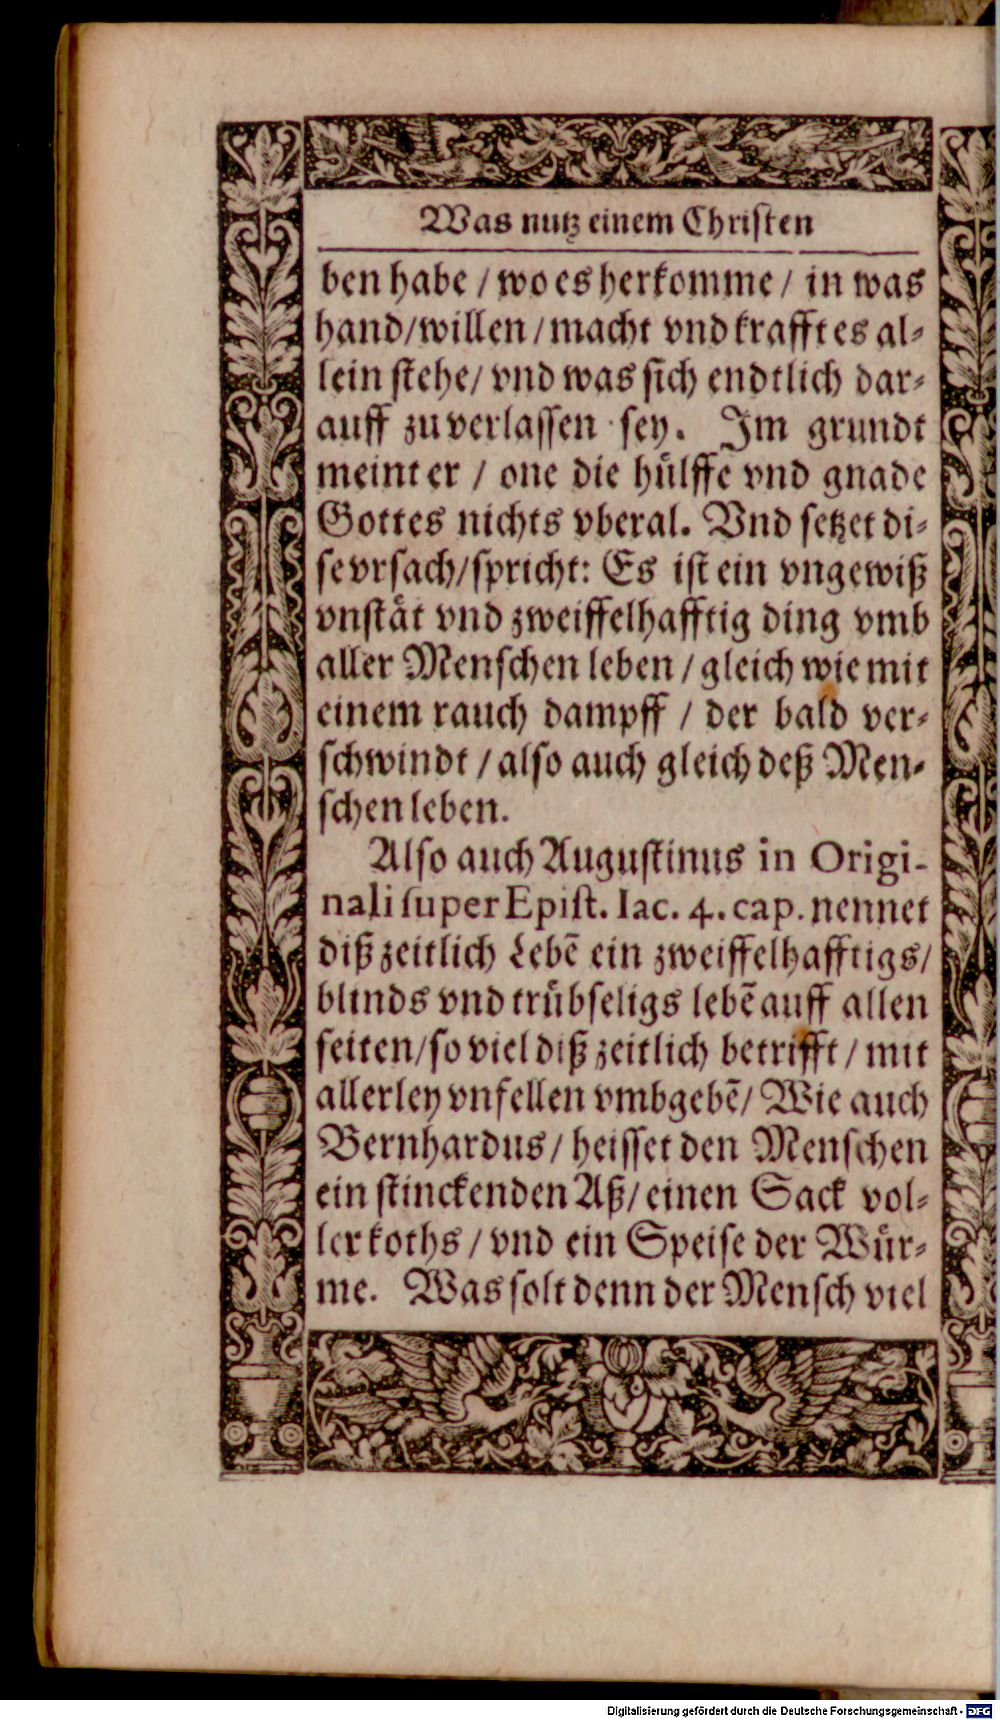 Was nutz einem Christen
ben habe / wo es herkomme / in was
hand / willen / macht vnd krafft es al⸗
lein stehe / vnd was sich endtlich dar⸗
auff zu verlassen sey. Im grundt
meint er / one die hülffe vnd gnade
Gottes nichts vberal. Vnd setzet di⸗
se vrsach / spricht: Es ist ein vngewiß
vnstät vnd zweiffelhafftig ding vmb
aller Menschen leben / gleich wie mit
einem rauch dampff / der bald ver⸗
schwindt / also auch gleich deß Men⸗
schen leben.
Also auch Augustinus in Origi-
nali super Epist. Iac. 4. cap. nennet
diß zeitlich Lebẽ ein zweiffelhafftigs /
blinds vnd trübseligs lebẽ auff allen
seiten / so viel diß zeitlich betrifft / mit
allerley vnfellen vmbgebẽ / Wie auch
Bernhardus / heisset den Menschen
ein stinckenden Aß / einen Sack vol⸗
ler koths / vnd ein Speise der Wür⸗
me. Was solt denn der Mensch viel
Digitalisierung gefördert durch die Deutsche Forschungsgemeinschaft - DFG